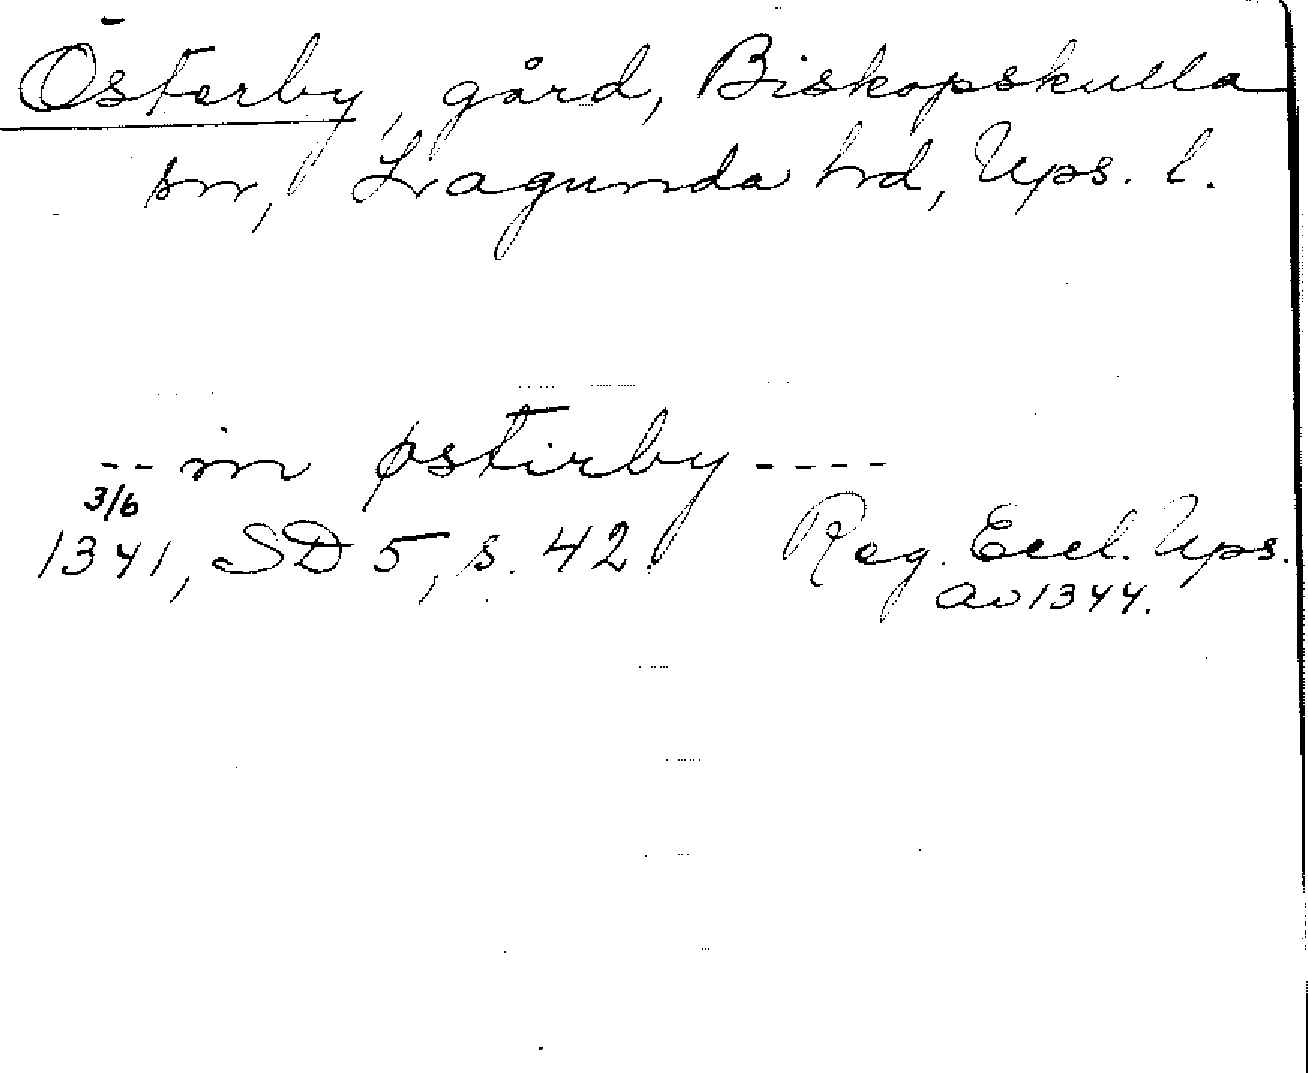 Österby, gård, Biskopskulla
sn, Lagunda hd, Ups. l.
-- in østirby ----
3/6
1341, SD 5, s. 42. Reg. Eccl. Ups.
av 1344.